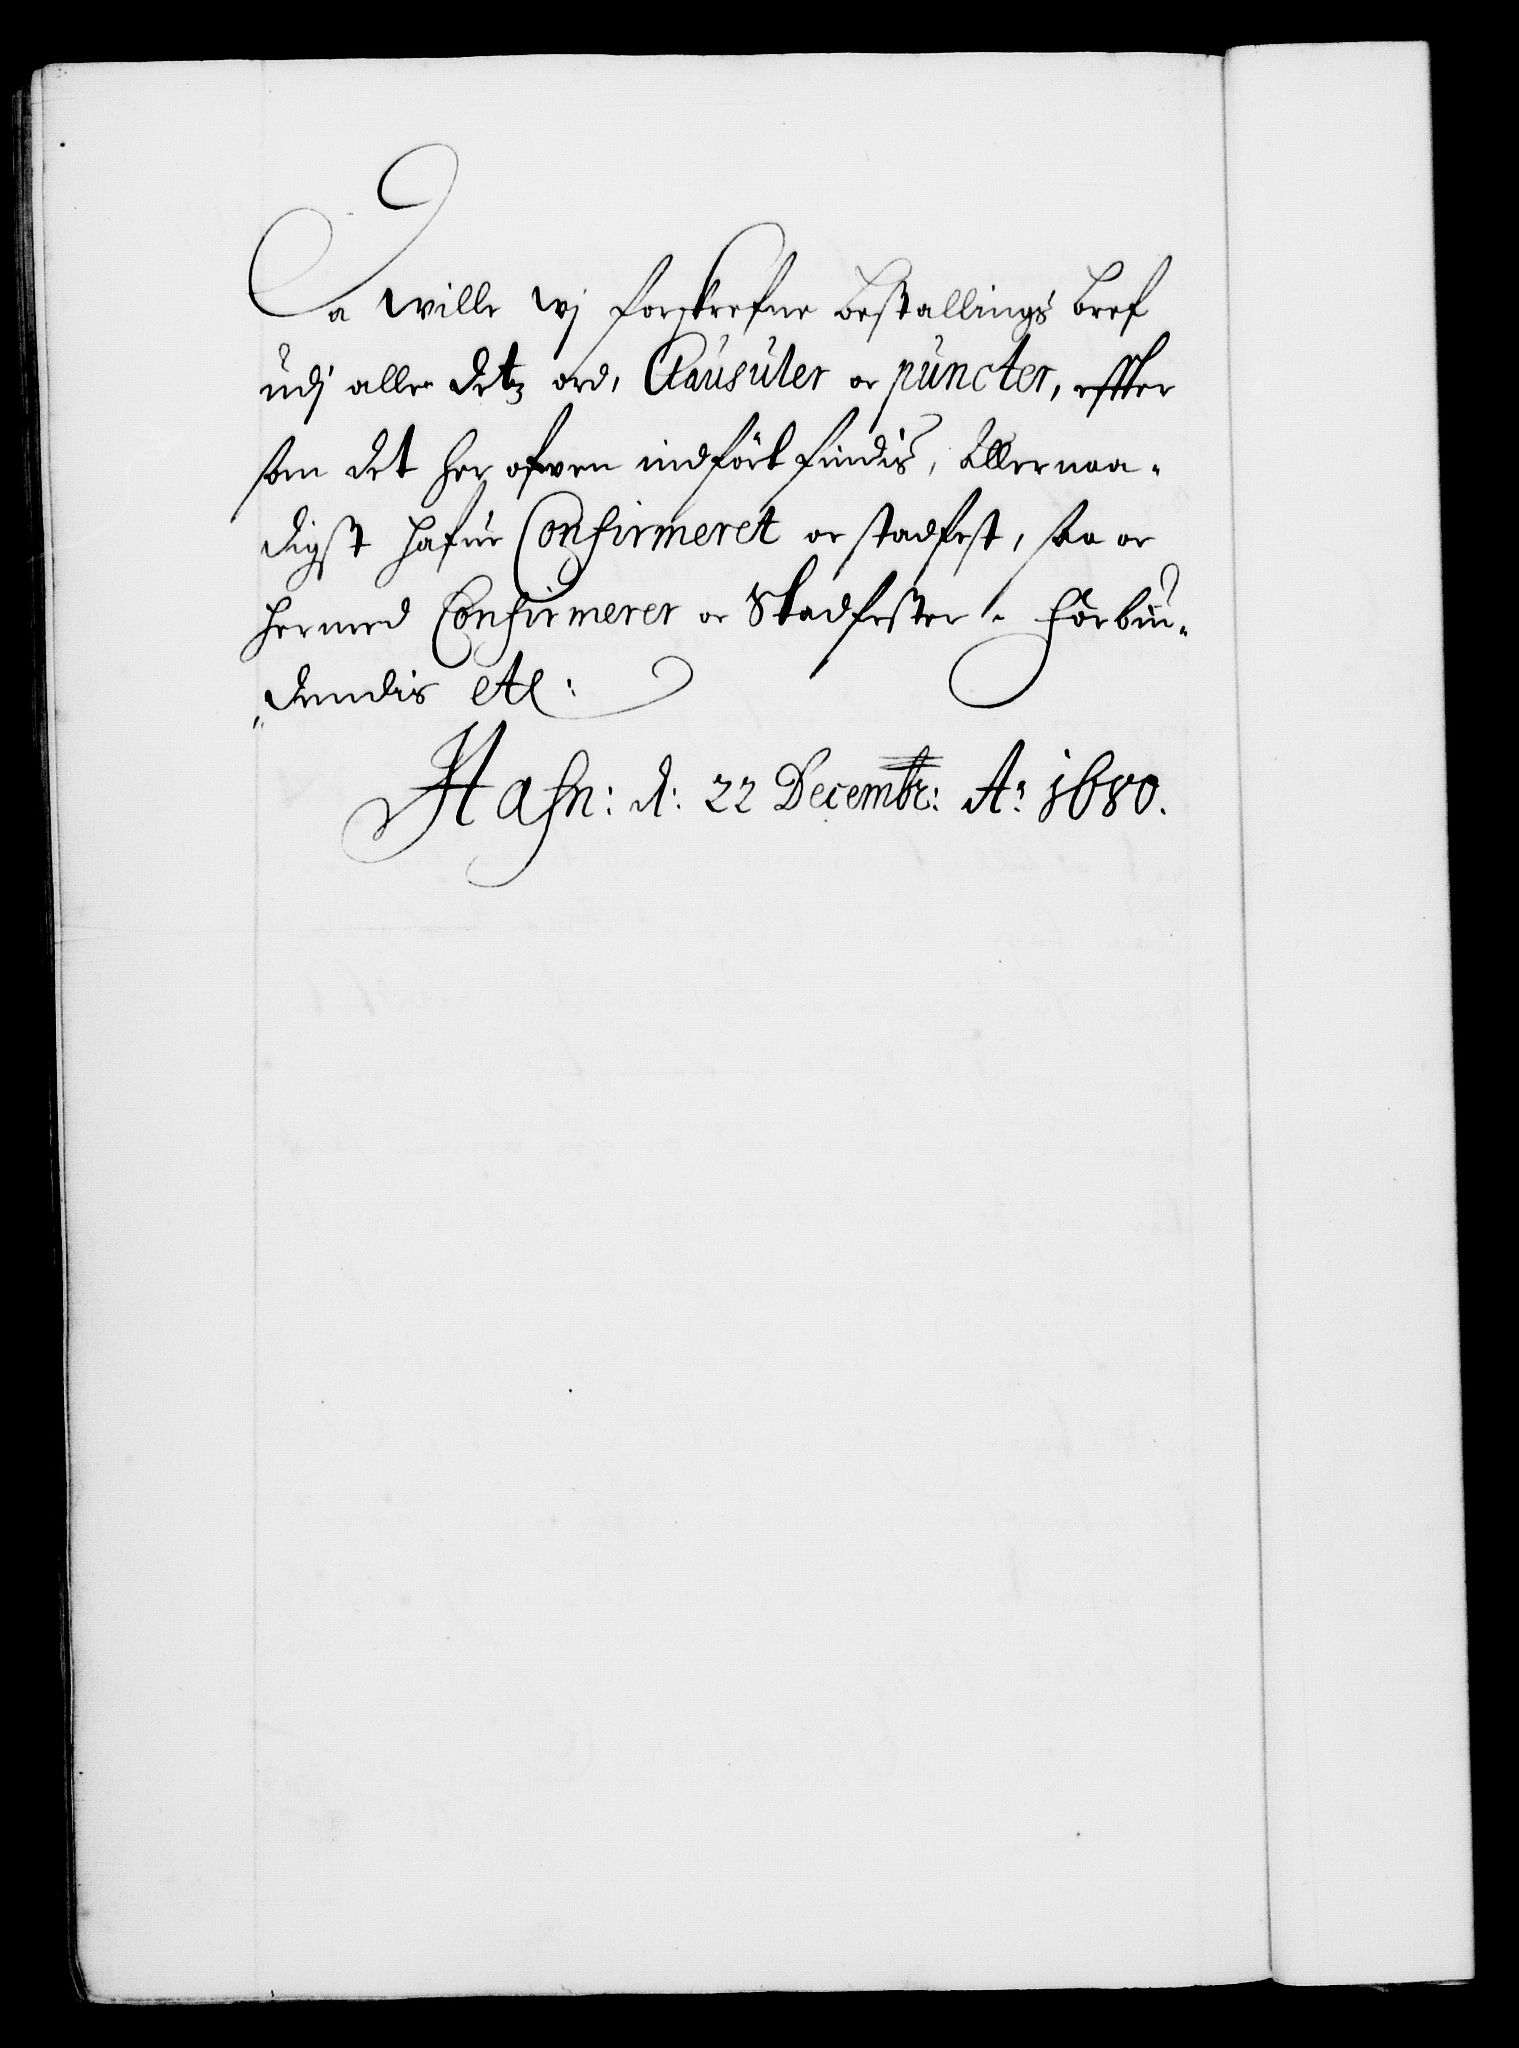 Da wille wj forskrefne Bestallings bref
udj alle detz ord, Clausuler oc puncter, effter
som det her ofwen indfört findis, Allernaa-
digst hafue Confirmeret oc stadfest, saa oc
hermed Confirmerer oc Stadfester. Forbiu-
dendis etc:
Hafn: d: 22 Decembr: Ao 1680.